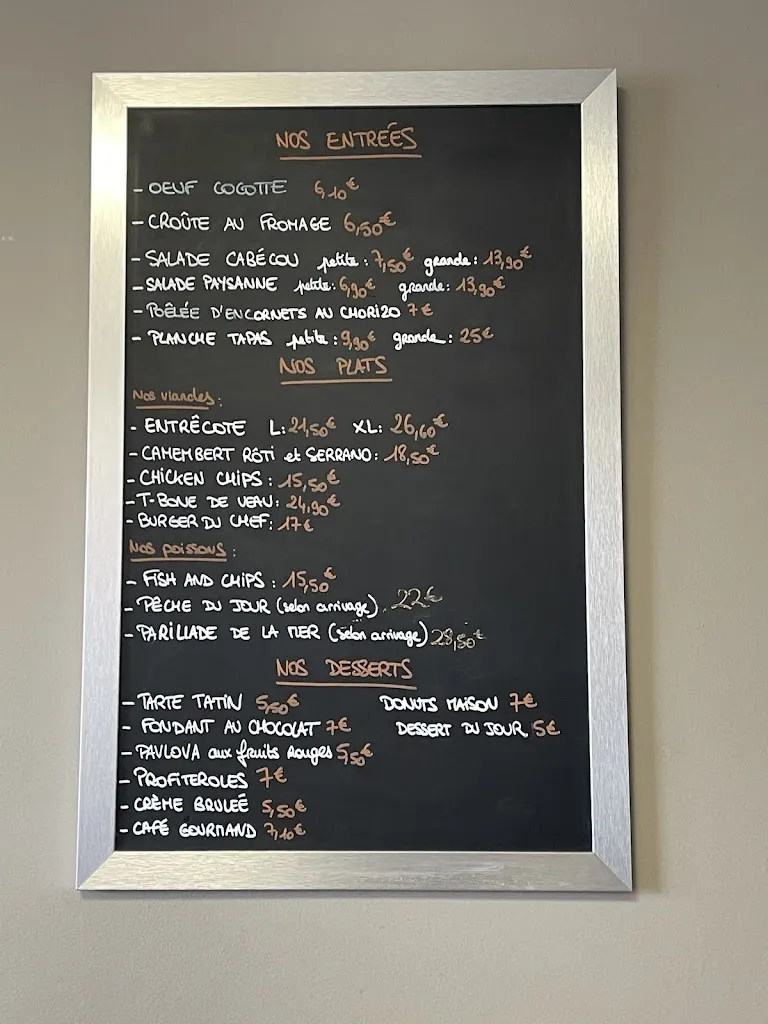 NOS ENTREÉS
- OEUF COCOTTE 6,10€
- CROÛTE AU FROMAGE 6,50€
- SALADE CABÉCOU petite : 7,50€ grande : 13,90€
- SALADE PAYSANNE petite : 6,90€ grande : 13,90€
- POÊLÉE D'ENCORNETS AU CHORIZO 7€
- PLANCHE TAPAS petite : 9,90€ grande : 25€
NOS PLATS
Nos viandes :
- ENTRÊCOTE L: 21,50€ XL: 26,60€
- CAMEMBERT RÔTI et SERRANO : 18,50€
- CHICKEN CHIPS : 15,50€
- T-BONE DE VEAU : 24,90€
- BURGER DU CHEF : 17€
Nos poissons :
- FISH AND CHIPS : 15,50€
- PÊCHE DU JOUR (selon arrivage) . 22€
- PARILLADE DE LA MER (selon arrivage) 28,50€
NOS DESSERTS
- TARTE TATIN 5,50€ DONUTS MAISON 7€
- FONDANT AU CHOCOLAT 7€ DESSERT DU JOUR 5€
- PAVLOVA aux fruits Rouges 5,50€
- PROFITEROLES 7€
- CRÈME BRULEÉ 5,50€
- CAFÉ GOURMAND 7,10€